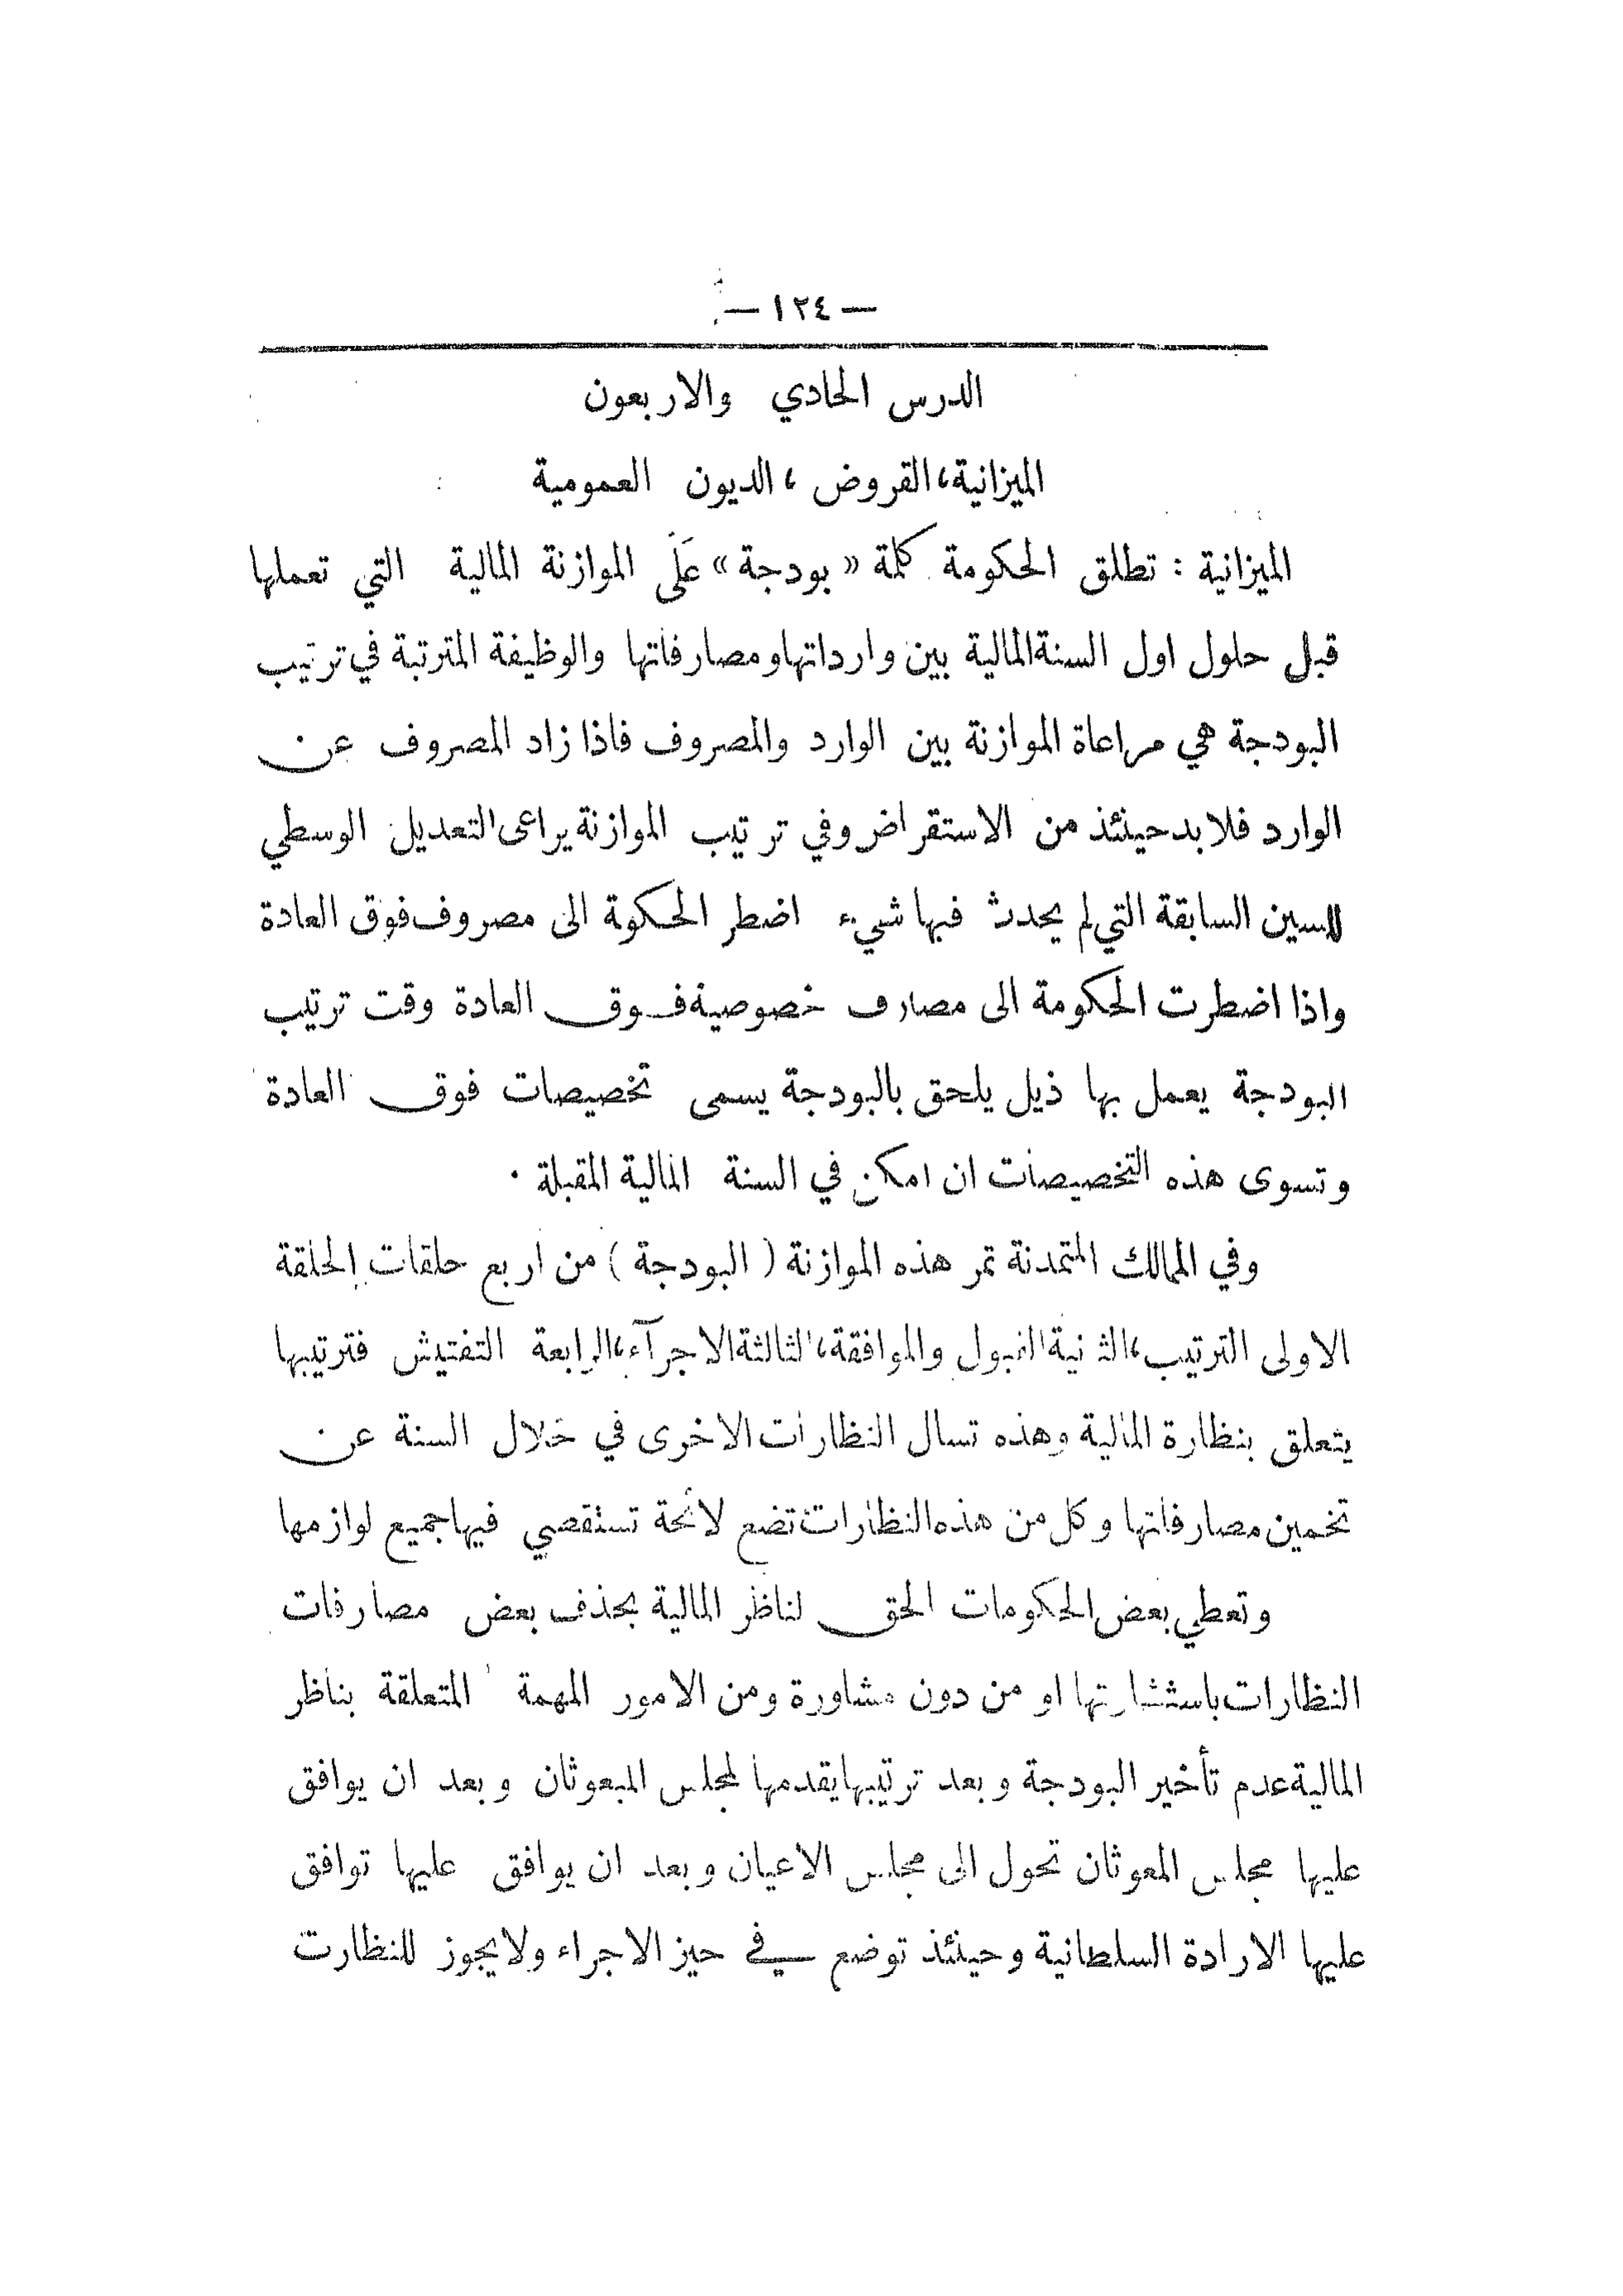 — ١٢٤ —
الدرس الحادي والاربعون
الميزانية، القروض، الديون العمومية
الميزانية : تطلق الحكومة كلمة « بودجة » عَلَى الموازنة المالية التي تعملها
قبل حلول اول السنة المالية بين وارداتها ومصارفاتها والوظيفة المترتبة في ترتيب
البودجة هي مراعاة الموازنة بين الوارد والمصروف فاذا زاد المصروف عن
الوارد فلا بد حينئذ من الاستقراض وفي ترتيب الموازنة يراعى التعديل الوسطي
للسين السابقة التي لم يحدث فيها شيء اضطر الحكوة الى مصروف فوق العادة
واذا اضطرت الحكومة الى مصارف خصوصية فوق العادة وقت ترتيب
البودجة يعمل بها ذيل يلحق بالبودجة يسمى تخصيصات فوق العادة
وتسوى هذه التخصيصات ان امكن في السنة المالية المقبلة .
وفي الممالك المتمدنة تمر هذه الموازنة ( البودجة ) من اربع حلقات الحلقة
الاولى الترتيب، الثانية القبول والموافقة، الثالثة الاجرآء، الرابعة التفتيش فترتيبها
يتعلق بنظارة المالية وهذه تسال النظارات الاخرى في خلال السنة عن
تخمين مصارفاتها وكل من هذه النظارات تضع لائحة تستقصي فيها جميع لوازمها
وتعطي بعض الحكومات الحق لناظر المالية بحذف بعض مصارفات
النظارات باستشارتها او من دون مشاورة ومن الامور المهمة المتعلقة بناظر
المالية عدم تأخير البودجة وبعد ترتيبها يقدمها لمجلس المبعوثان وبعد ان يوافق
عليها مجلس المعوثان تحول الى مجلس الاعيان وبعد ان يوافق عليها توافق
عليها الارادة السلطانية وحينئذ توضع في حيز الاجراء ولا يجوز للنظارت